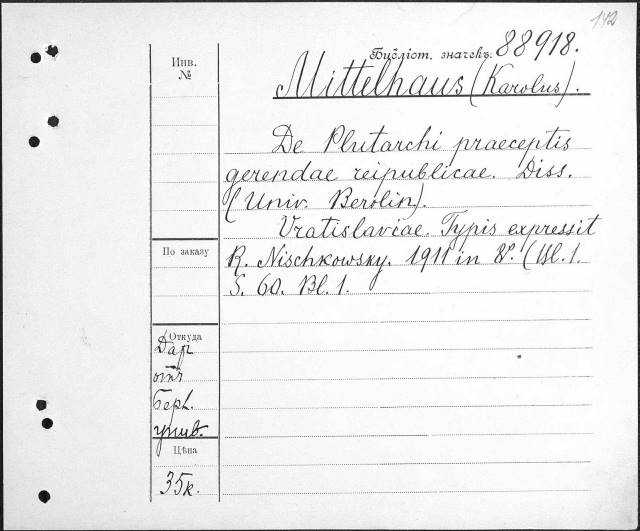 142
Инв.
№
Библіот. значекъ. 88918.
Mittelhaus (Karolus).
De Plutarchi praeceptis
gerendae reipublicae. Diss.
(Univ. Berolin).
Vratislaviae. Typis expressit
R. Nischkowsky. 1911 in 8°. (Bl. 1.
S. 60. Bl. 1.
По заказу
Откуда
Дар
отъ
Берл.
унив.
Цѣна
35к.